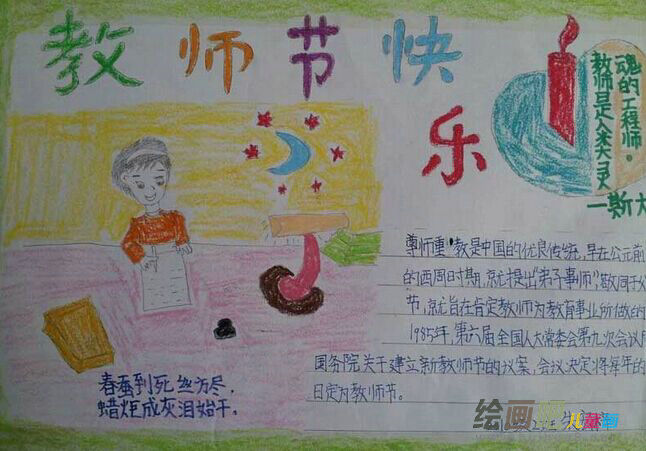 教师节快
乐
教师是人类灵
魂的工程师。
—斯大
尊师重教是中国的优良传统,早在公元前
的西周时期,就提出"弟子事师,敬同于父
节,就旨在肯定教师为教育事业所做的
1985年,第六届全国人大常委会第九次会议
国务院关于建立新教师节的议案,会议决定将每年的
日定为教师节。
春蚕到死丝方尽,
蜡炬成灰泪始干。
绘画